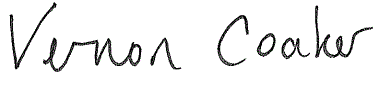 Vernon Coaker